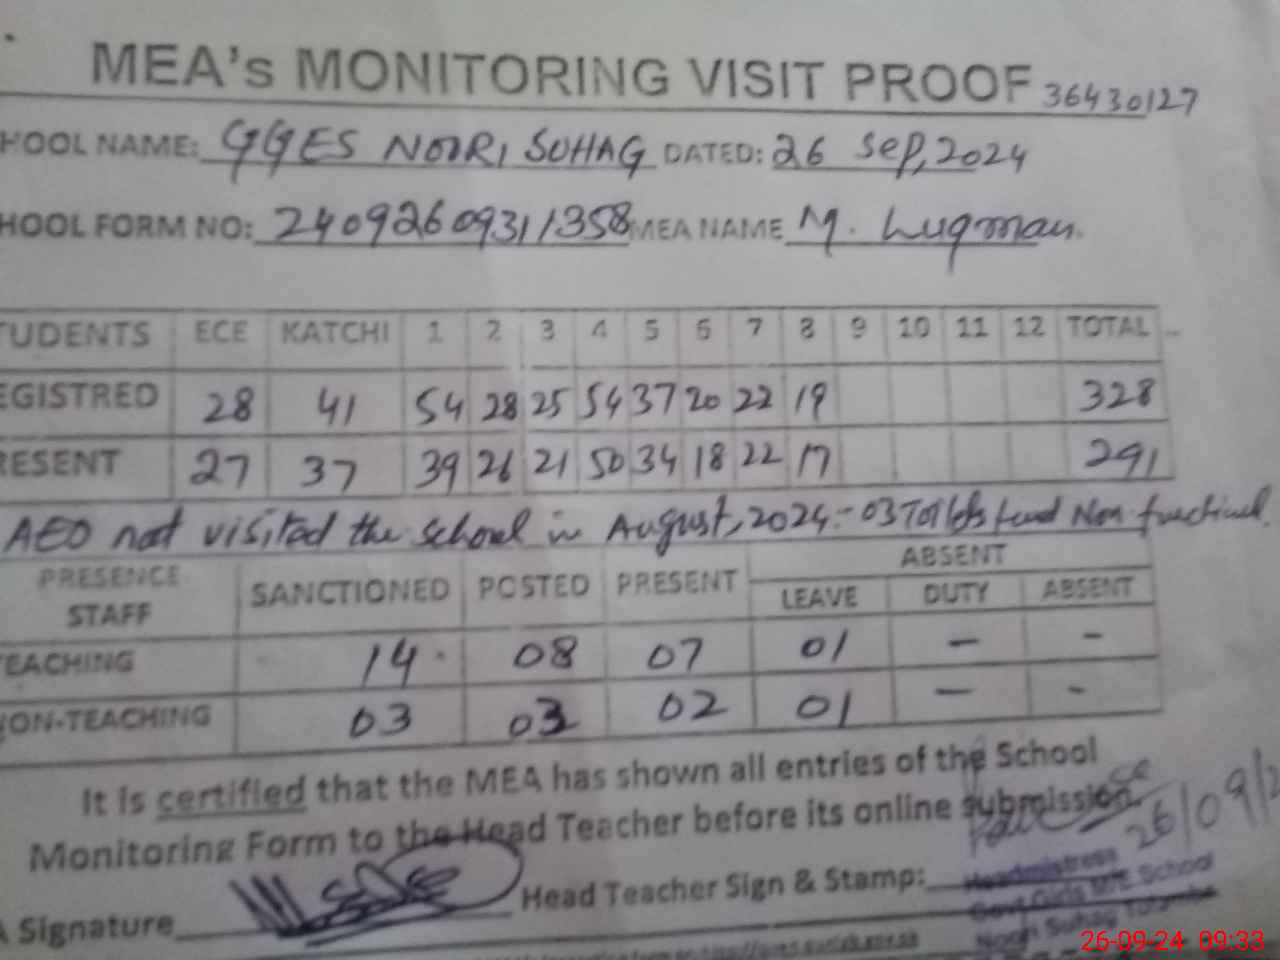 MEA's MONITORING VISIT PROOF 36430127
HOOL NAME: GGES NOORI SUHAG DATED: 26 Sep, 2024
HOOL FORM NO: 24092609311358 MEA NAME M. Luqman
TUDENTS ECE KATCHI 1 2 3 4 5 6 7 8 9 10 11 12 TOTAL
EGISTRED 28 41 54 28 25 54 37 20 22 19 328
RESENT 27 37 39 26 21 50 34 18 22 17 291
AEO not visited the school in August, 2024:- 03 Non-functional
PRESENCE STAFF SANCTIONED POSTED PRESENT ABSENT
LEAVE DUTY ABSENT
TEACHING 14 08 07 01 - -
NON-TEACHING 03 03 02 01 - -
It is certified that the MEA has shown all entries of the School
Monitoring Form to the Head Teacher before its online submission.
26/09/2
A Signature Head Teacher Sign & Stamp:
Headmistress
Govt Girls M/E School
Noori Suhag
26-09-24 09:33